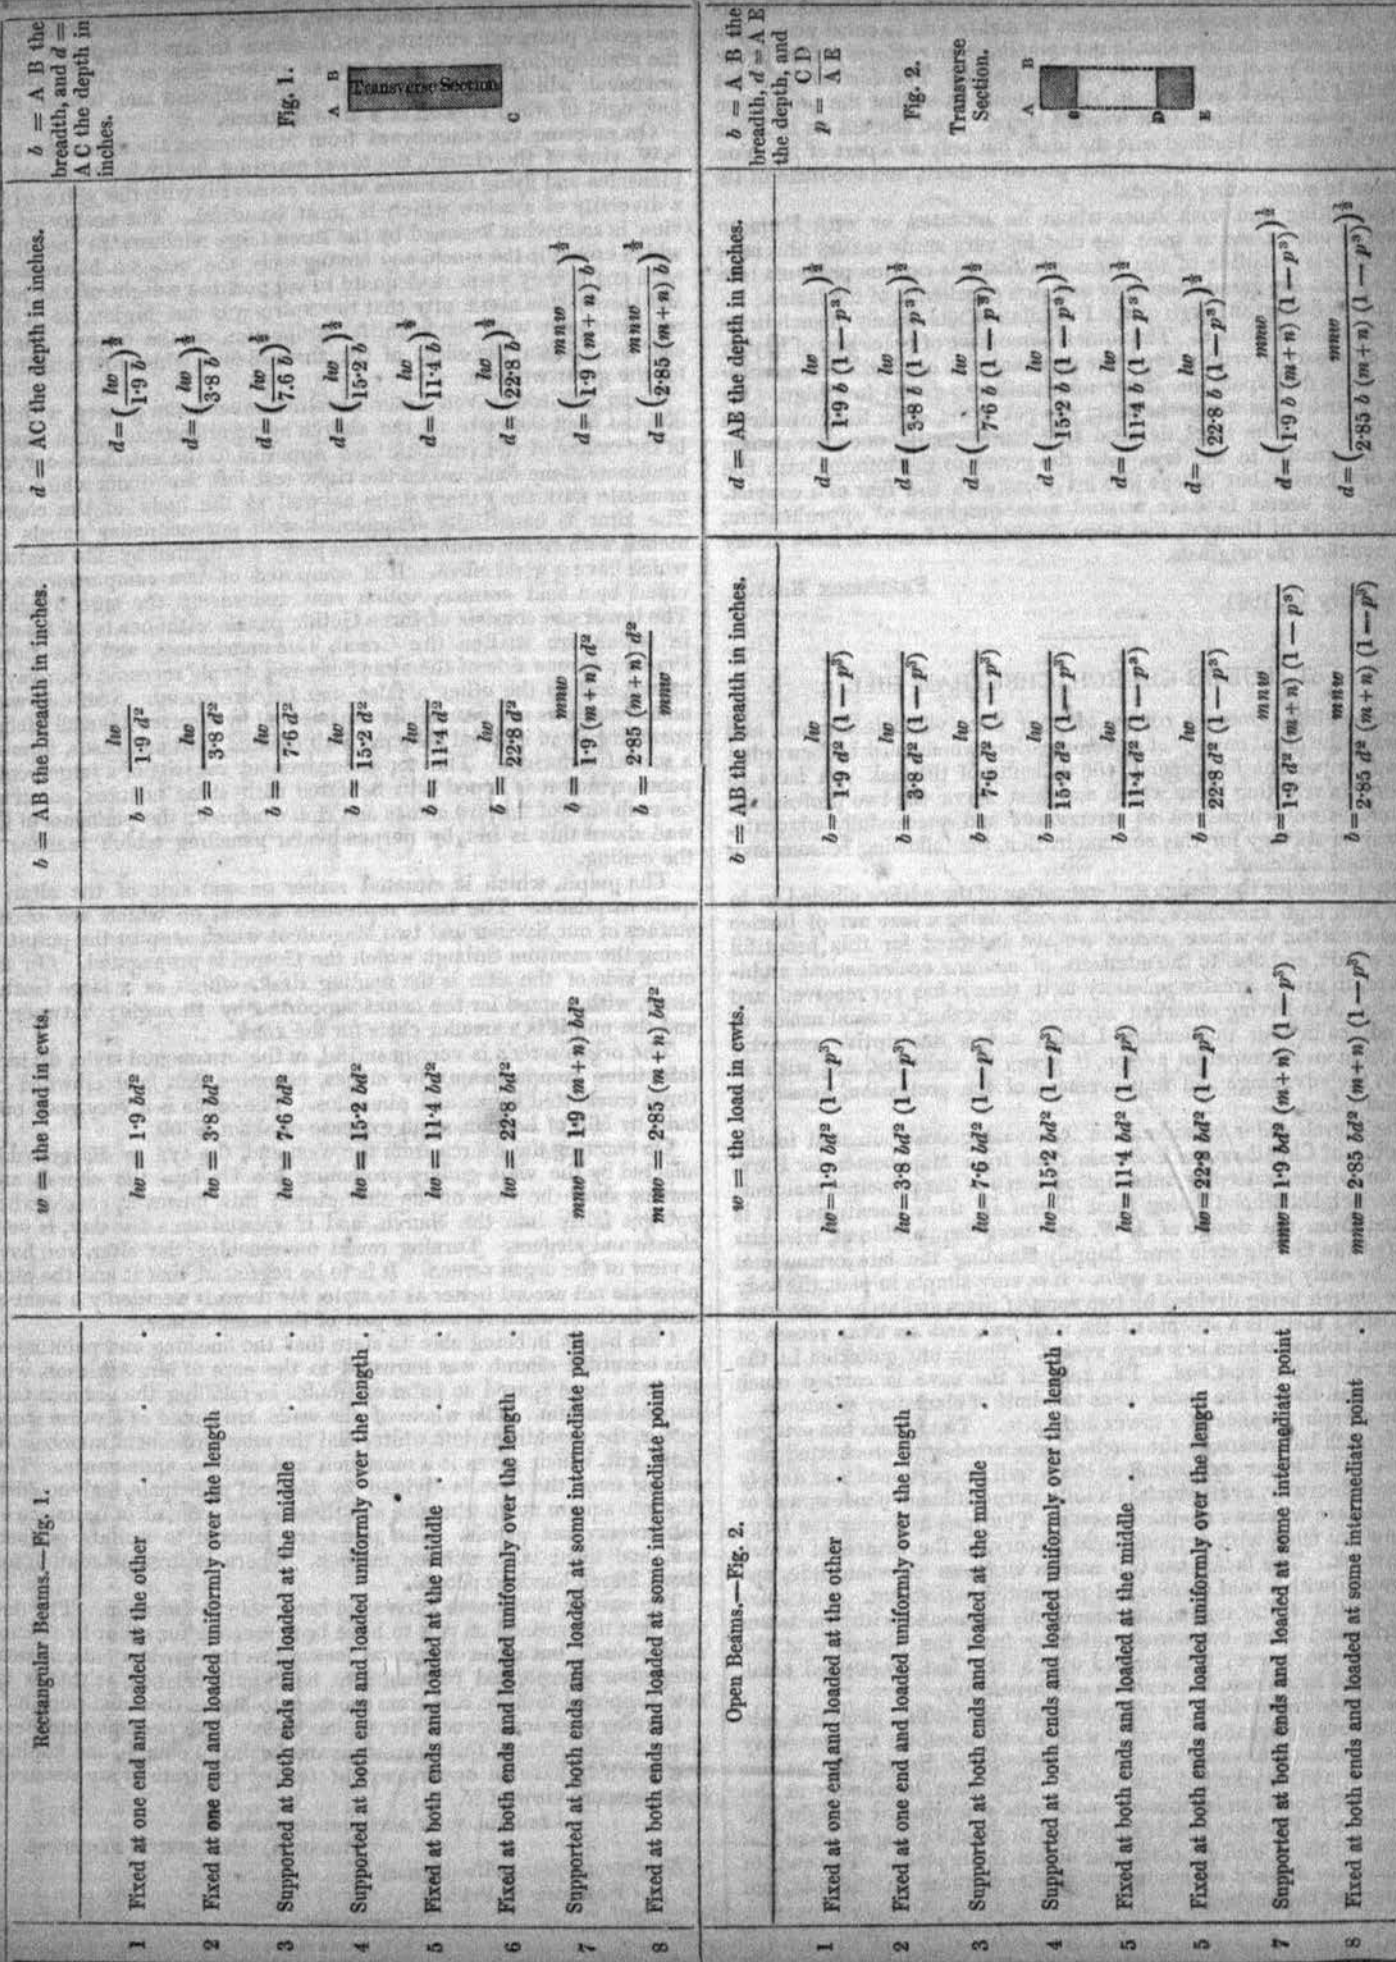 Rectangular Beams.—Fig. 1.
w = the load in cwts.
b = AB the breadth in inches.
d = AC the depth in inches.
b = A B the breadth, and d = A C the depth in inches.
1 Fixed at one end and loaded at the other . . . lw = 1·9 bd² b = lw / 1·9 d² d = (lw / 1·9 b)½
2 Fixed at one end and loaded uniformly over the length . lw = 3·8 bd² b = lw / 3·8 d² d = (lw / 3·8 b)½
3 Supported at both ends and loaded at the middle . . lw = 7·6 bd² b = lw / 7·6 d² d = (lw / 7.6 b)½
4 Supported at both ends and loaded uniformly over the length . lw = 15·2 bd² b = lw / 15·2 d² d = (lw / 15·2 b)½
5 Fixed at both ends and loaded at the middle . . . lw = 11·4 bd² b = lw / 11·4 d² d = (lw / 11·4 b)½
6 Fixed at both ends and loaded uniformly over the length . lw = 22·8 bd² b = lw / 22·8 d² d = (lw / 22·8 b)½
7 Supported at both ends and loaded at some intermediate point mnw = 1·9 (m+n) bd² b = mnw / 1·9 (m+n) d² d = (mnw / 1·9 (m+n) b)½
8 Fixed at both ends and loaded at some intermediate point . mnw = 2·85 (m+n) bd² b = 2·85 (m+n) d² / mnw d = (mnw / 2·85 (m+n) b)½
Fig. 1.
A B
Transverse Section
C
Open Beams.—Fig. 2.
w = the load in cwts.
b = AB the breadth in inches.
d = AE the depth in inches.
b = A B the breadth, d = A E the depth, and
p = C D / A E
1 Fixed at one end and loaded at the other . . . lw = 1·9 bd² (1—p³) b = lw / 1·9 d² (1—p³) d = (lw / 1·9 b (1—p³))½
2 Fixed at one end and loaded uniformly over the length . lw = 3·8 bd² (1—p³) b = lw / 3·8 d² (1—p³) d = (lw / 3·8 b (1—p³))½
3 Supported at both ends and loaded at the middle . . lw = 7·6 bd² (1—p³) b = lw / 7·6 d² (1—p³) d = (lw / 7·6 b (1—p³))½
4 Supported at both ends and loaded uniformly over the length . lw = 15·2 bd² (1—p³) b = lw / 15·2 d² (1—p³) d = (lw / 15·2 b (1—p³))½
5 Fixed at both ends and loaded at the middle . . . lw = 11·4 bd² (1—p³) b = lw / 11·4 d² (1—p³) d = (lw / 11·4 b (1—p³))½
5 Fixed at both ends and loaded uniformly over the length . lw = 22·8 bd² (1—p³) b = lw / 22·8 d² (1—p³) d = (lw / 22·8 b (1—p³))½
7 Supported at both ends and loaded at some intermediate point mnw = 1·9 bd² (m+n) (1—p³) b = mnw / 1·9 d² (m+n) (1—p³) d = (mnw / 1·9 b (m+n) (1—p³))½
8 Fixed at both ends and loaded at some intermediate point . mnw = 2·85 bd² (m+n) (1—p³) b = mnw / 2·85 d² (m+n) (1—p³) d = (mnw / 2·85 b (m+n) (1—p³))½
Fig. 2.
Transverse
Section.
A B
C
D
E